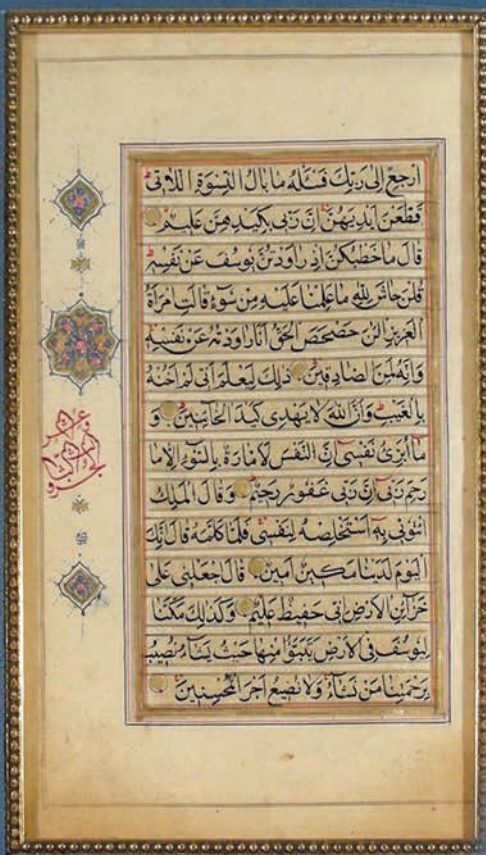 ارْجِعْ إِلَى رَبِّكَ فَسْئَلْهُ مَا بَالُ النِّسْوَةِ اللَّاتِي
قَطَّعْنَ أَيْدِيَهُنَّ إِنَّ رَبِّي بِكَيْدِهِنَّ عَلِيمٌ
قَالَ مَا خَطْبُكُنَّ إِذْ رَاوَدْتُنَّ يُوسُفَ عَنْ نَفْسِهِ
قُلْنَ حَاشَ لِلَّهِ مَا عَلِمْنَا عَلَيْهِ مِنْ سُوءٍ قَالَتِ امْرَأَةُ
الْعَزِيزِ الْئٰنَ حَصْحَصَ الْحَقُّ أَنَا رَاوَدْتُهُ عَنْ نَفْسِهِ
وَإِنَّهُ لَمِنَ الصَّادِقِينَ ذَلِكَ لِيَعْلَمَ أَنِّي لَمْ أَخُنْهُ
بِالْغَيْبِ وَأَنَّ اللَّهَ لَا يَهْدِي كَيْدَ الْخَائِنِينَ وَ
مَا أُبَرِّئُ نَفْسِي إِنَّ النَّفْسَ لَأَمَّارَةٌ بِالسُّوءِ إِلَّا مَا
رَحِمَ رَبِّي إِنَّ رَبِّي غَفُورٌ رَحِيمٌ وَقَالَ الْمَلِكُ
ائْتُونِي بِهِ أَسْتَخْلِصْهُ لِنَفْسِي فَلَمَّا كَلَّمَهُ قَالَ إِنَّكَ
الْيَوْمَ لَدَيْنَا مَكِينٌ أَمِينٌ قَالَ اجْعَلْنِي عَلَى
خَزَائِنِ الْأَرْضِ إِنِّي حَفِيظٌ عَلِيمٌ وَكَذَلِكَ مَكَّنَّا
لِيُوسُفَ فِي الْأَرْضِ يَتَبَوَّأُ مِنْهَا حَيْثُ يَشَاءُ نُصِيبُ
بِرَحْمَتِنَا مَنْ نَشَاءُ وَلَا نُضِيعُ أَجْرَ الْمُحْسِنِينَ